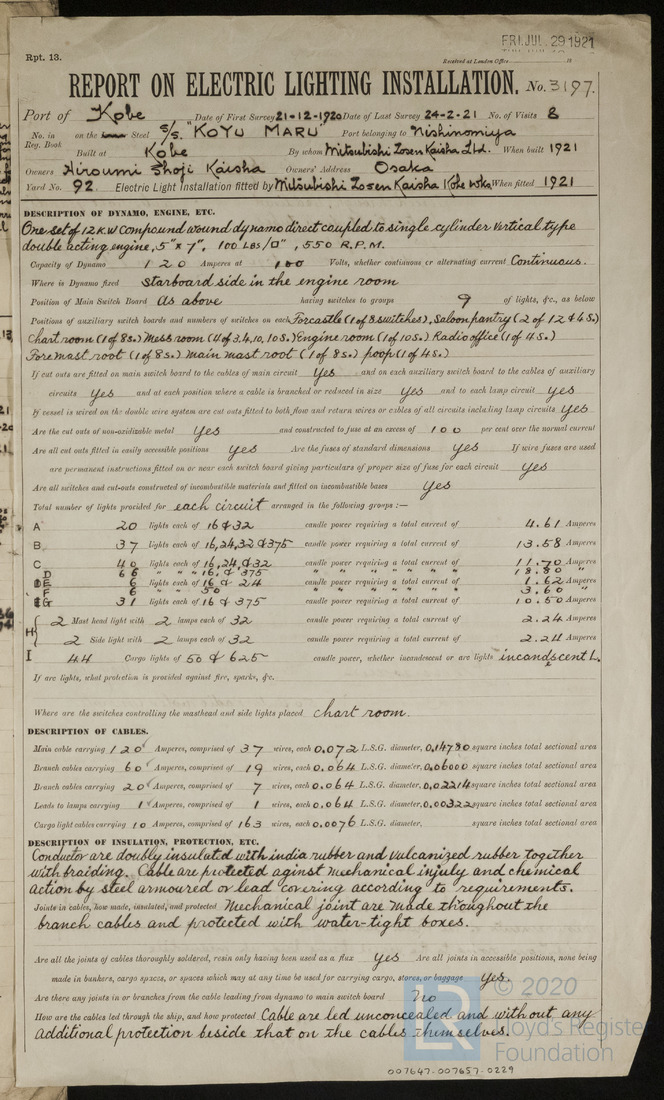 FRI. JUL. 29 1921
Rpt. 13.
Received at London Office
REPORT ON ELECTRIC LIGHTING INSTALLATION. No. 3197.
Port of Kobe Date of First Survey 21-12-1920 Date of Last Survey 24-2-21 No. of Visits 8
No. in Reg. Book on the Iron Steel S/S. "KOYU MARU" Port belonging to Nishinomiya
Built at Kobe By whom Mitsubishi Zosen Kaisha Ltd. When built 1921
Owners Hiroumi Shoji Kaisha Owners' Address Osaka
Yard No. 92. Electric Light Installation fitted by Mitsubishi Zosen Kaisha Kobe Wks When fitted 1921
DESCRIPTION OF DYNAMO, ENGINE, ETC.
One set of 12 K.W compound wound dynamo direct coupled to single cylinder vertical type
double acting engine, 5" x 7", 100 Lbs/□", 550 R.P.M.
Capacity of Dynamo 120 Amperes at 100 Volts, whether continuous or alternating current Continuous.
Where is Dynamo fixed starboard side in the engine room
Position of Main Switch Board As above having switches to groups 9 of lights, &c., as below
Positions of auxiliary switch boards and numbers of switches on each Forcastle (1 of 8 switches), Saloon pantry (2 of 12 & 4 S.)
Chart room (1 of 8 s.) Mess room (4 of 3.4.10.10 S.) Engine room (1 of 10 S.) Radio office (1 of 4 S.)
Foremast root (1 of 8 S.) main mast root (1 of 8 S.) poop (1 of 4 S.)
If cut outs are fitted on main switch board to the cables of main circuit Yes and on each auxiliary switch board to the cables of auxiliary
circuits Yes and at each position where a cable is branched or reduced in size Yes and to each lamp circuit Yes
If vessel is wired on the double wire system are cut outs fitted to both flow and return wires or cables of all circuits including lamp circuits Yes
Are the cut outs of non-oxidizable metal Yes and constructed to fuse at an excess of 100 per cent over the normal current
Are all cut outs fitted in easily accessible positions Yes Are the fuses of standard dimensions Yes If wire fuses are used
are permanent instructions fitted on or near each switch board giving particulars of proper size of fuse for each circuit Yes
Are all switches and cut-outs constructed of incombustible materials and fitted on incombustible bases Yes
Total number of lights provided for each circuit arranged in the following groups :—
A 20 lights each of 16 & 32 candle power requiring a total current of 4.61 Amperes
B 37 lights each of 16,24,32 & 375 candle power requiring a total current of 13.58 Amperes
C 40 lights each of 16,24,& 32 candle power requiring a total current of 11.70 Amperes
D 66 " " " 16, & 375 " " " " " " 18.80 "
E 6 lights each of 16 & 24 candle power requiring a total current of 1.62 Amperes
F 6 " " 50 " " " " " " 3.60 "
G 31 lights each of 16 & 375 candle power requiring a total current of 10.50 Amperes
H 2 Mast head light with 2 lamps each of 32 candle power requiring a total current of 2.24 Amperes
2 Side light with 2 lamps each of 32 candle power requiring a total current of 2.24 Amperes
I 44 Cargo lights of 50 & 625 candle power, whether incandescent or arc lights incandescent L.
If arc lights, what protection is provided against fire, sparks, &c.
Where are the switches controlling the masthead and side lights placed chart room.
DESCRIPTION OF CABLES.
Main cable carrying 120 Amperes, comprised of 37 wires, each 0.072 L.S.G. diameter, 0.14780 square inches total sectional area
Branch cables carrying 60 Amperes, comprised of 19 wires, each 0.064 L.S.G. diameter, 0.06000 square inches total sectional area
Branch cables carrying 20 Amperes, comprised of 7 wires, each 0.064 L.S.G. diameter, 0.02214 square inches total sectional area
Leads to lamps carrying 1 Amperes, comprised of 1 wires, each 0.064 L.S.G. diameter, 0.00322 square inches total sectional area
Cargo light cables carrying 10 Amperes, comprised of 163 wires, each 0.0076 L.S.G. diameter, square inches total sectional area
DESCRIPTION OF INSULATION, PROTECTION, ETC.
Conductor are doubly insulated with india rubber and vulcanized rubber together
with braiding. Cable are protected aginst mechanical injuly and chemical
action by steel armoured or lead covering according to requirements.
Joints in cables, how made, insulated, and protected Mechanical joint are made throughout the
branch cables and protected with water-tight boxes.
Are all the joints of cables thoroughly soldered, resin only having been used as a flux Yes Are all joints in accessible positions, none being
made in bunkers, cargo spaces, or spaces which may at any time be used for carrying cargo, stores, or baggage Yes.
Are there any joints in or branches from the cable leading from dynamo to main switch board No
How are the cables led through the ship, and how protected Cable are led unconcealed and without any
additional protection beside that on the cables themselves.
© 2020
Lloyd's Register
Foundation
007647-007657-0229